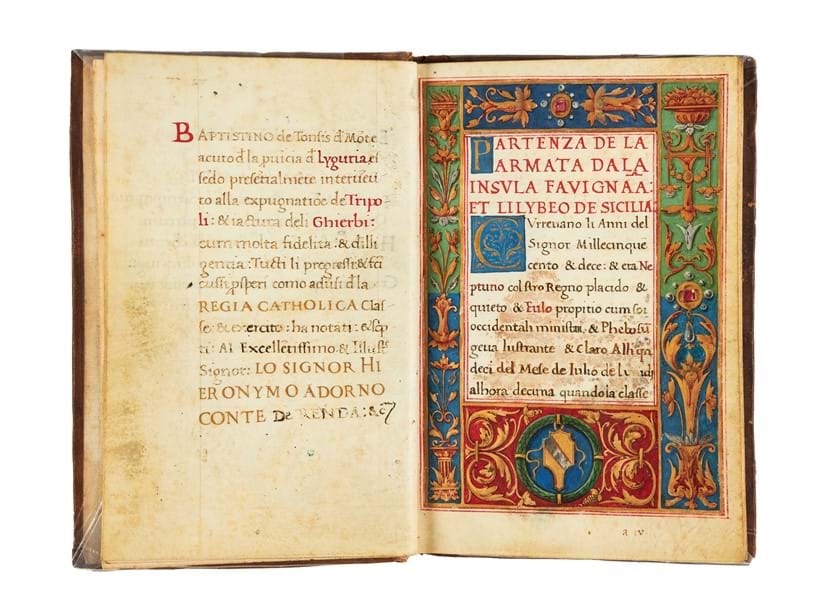 BAPTISTINO de Tonsis d'Mōte
acuto d'la ꝓuicia d' Lyguria, es
sēdo presētialmēte interueu
to alla expugnatiōe de Tripo
li: & iactura deli Ghierbi:
cum molta fidelita: & dilli
gencia: Tucti li progressi: & fa
cussi ꝓsperi como adūsi d'la
REGIA CATHOLICA Clas
se: & exercito: ha notati: & scp
ti: Al Excellētissimo & Illusē
Signor: LO SIGNOR HI
ERONYMO ADORNO
CONTE De RENDA: &c
PARTENZA DE LA
ARMATA DA LA
INSVLA FAVIGNAA:
ET LILYBEO DE SICILIA:
CVrreuano li Anni del
Signor Millecinque
cento & dece: & era Ne
ptuno col stro Regno placido &
quieto & Eulo propitio cum soi
occidentali ministri, & Phebo su
geua lustrante & Claro Alli qn
deci del Mese de Iulio de lu di
alhora decima quando la classe
a iv.